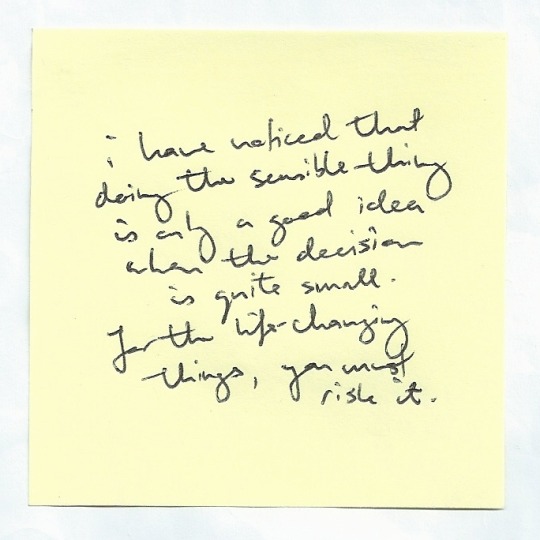 i have noticed that
doing the sensible thing
is only a good idea
when the decision
is quite small.
For the life-changing
things, you must
risk it.